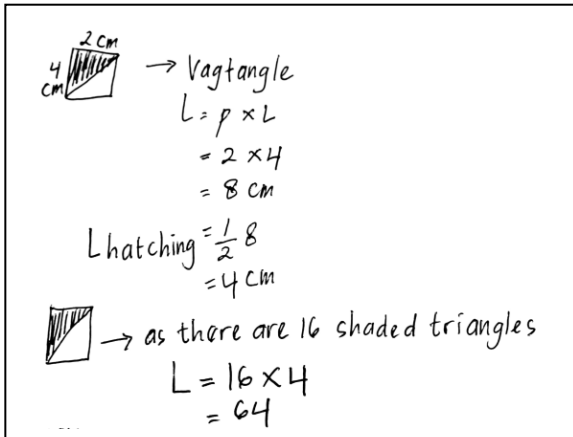 2 cm
4
cm
→ Vagtangle
L = p × L
= 2 × 4
= 8 cm
L hatching = 1/2 8
= 4 cm
→ as there are 16 shaded triangles
L = 16 × 4
= 64